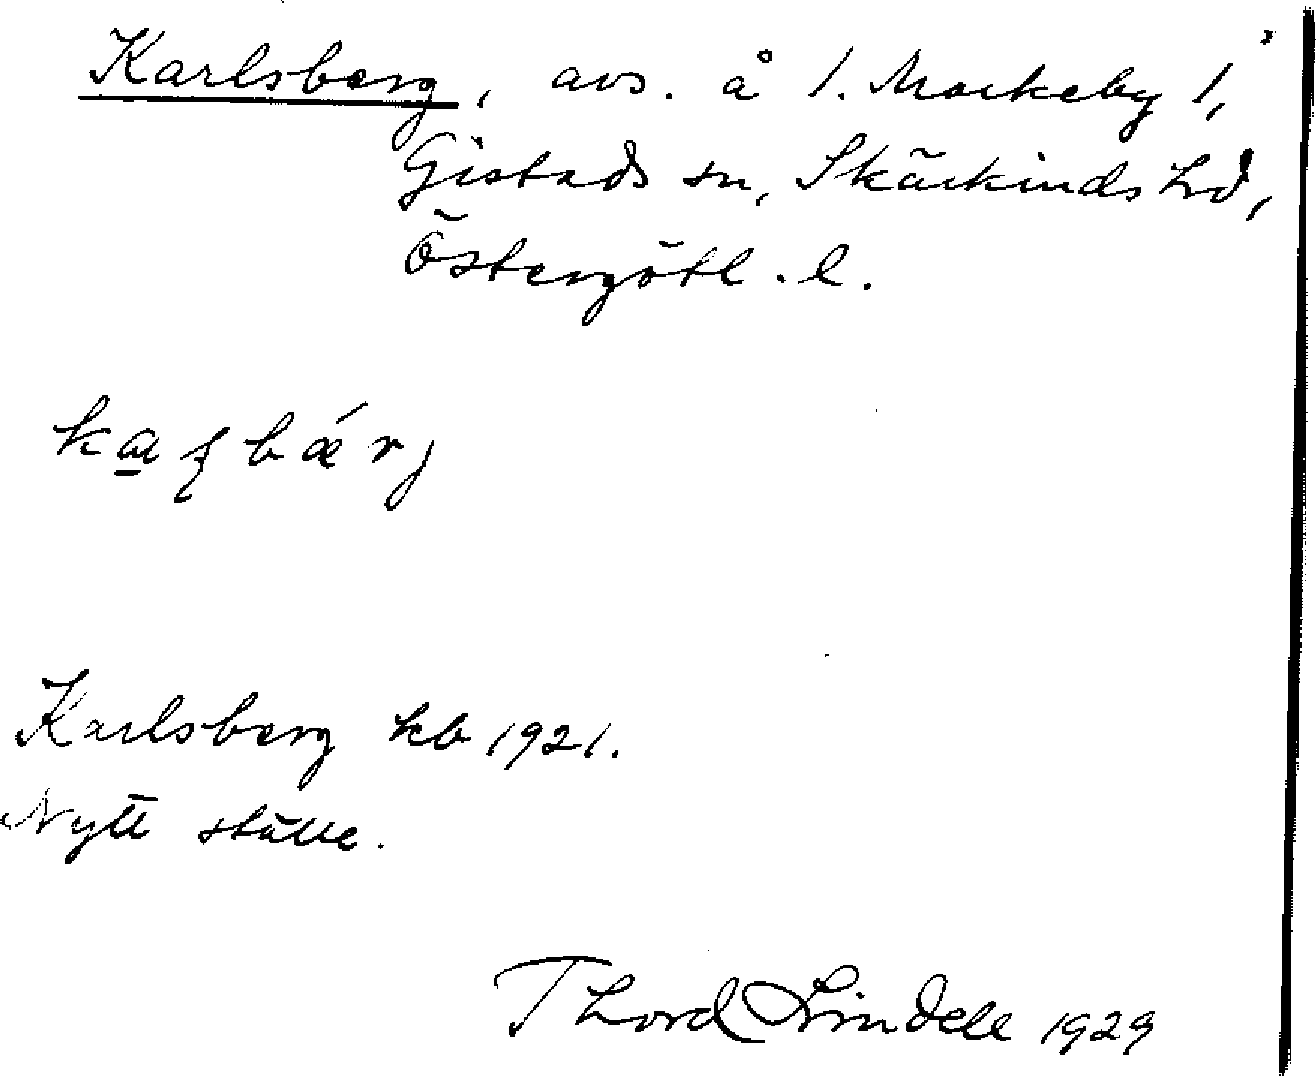 Karlsberg, avs. å 1. Markeby 1,
Gistads sn, Skärkinds hd,
Östergötl. l.
Karlsberg kb 1921.
Nytt ställe.
Thord Lindell 1929